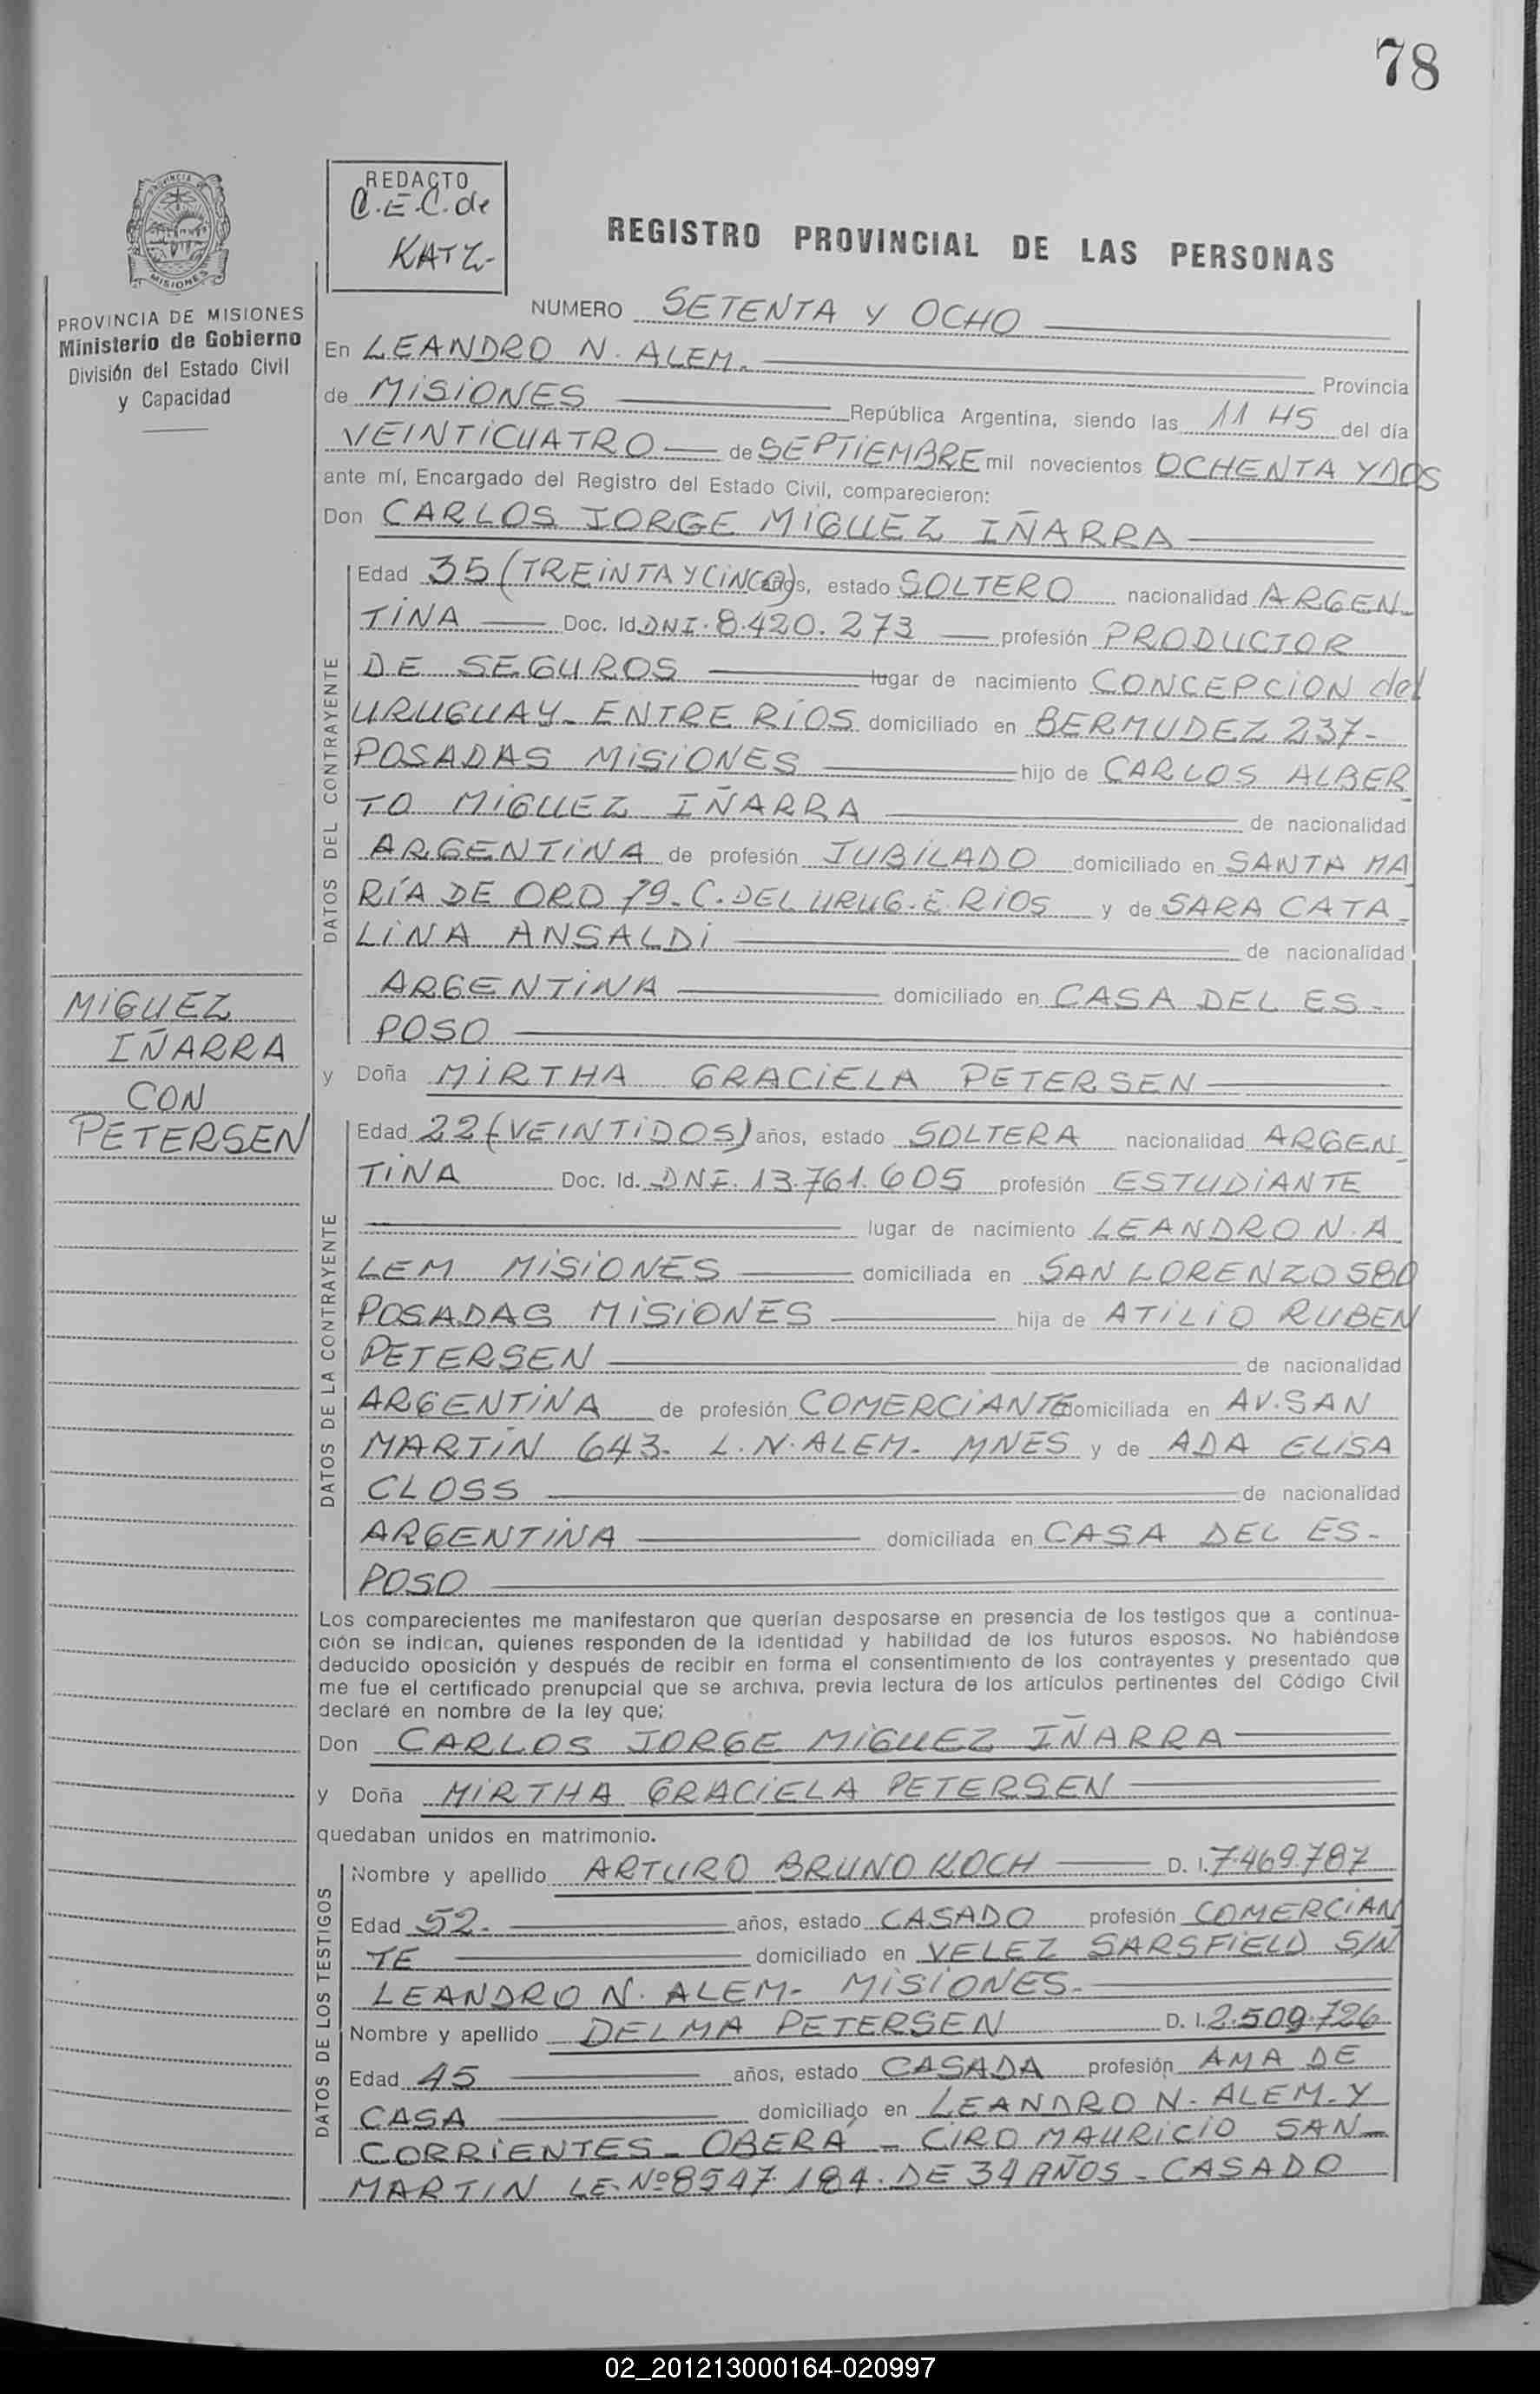 78
REDACTO
C.E.C. de
KATZ-
PROVINCIA
MISIONES
REGISTRO PROVINCIAL DE LAS PERSONAS
PROVINCIA DE MISIONES
Ministerio de Gobierno
División del Estado Civil
y Capacidad
NUMERO SETENTA Y OCHO
En LEANDRO N. ALEM. Provincia
de MISIONES República Argentina, siendo las 11 HS del día
VEINTICUATRO de SEPTIEMBRE mil novecientos OCHENTA Y DOS
ante mí, Encargado del Registro del Estado Civil, comparecieron:
Don CARLOS JORGE MIGUEZ IÑARRA
DATOS DEL CONTRAYENTE
Edad 35 (TREINTA Y CINCO) años, estado SOLTERO nacionalidad ARGEN-
TINA Doc. Id. DNI. 8.420.273 profesión PRODUCTOR
DE SEGUROS lugar de nacimiento CONCEPCION del
URUGUAY- ENTRE RÍOS domiciliado en BERMUDEZ 237-
POSADAS MISIONES hijo de CARLOS ALBER
TO MIGUEZ IÑARRA de nacionalidad
ARGENTINA de profesión JUBILADO domiciliado en SANTA MA
RÍA DE ORO 79- C. DEL URUG. E. RIOS y de SARA CATA-
LINA ANSALDI de nacionalidad
ARGENTINA domiciliado en CASA DEL ES-
POSO
MIGUEZ
IÑARRA
CON
PETERSEN
y Doña MIRTHA GRACIELA PETERSEN
DATOS DE LA CONTRAYENTE
Edad 22 (VEINTIDOS) años, estado SOLTERA nacionalidad ARGEN-
TINA Doc. Id. DNI. 13.761.605 profesión ESTUDIANTE
lugar de nacimiento LEANDRO N. A
LEM MISIONES domiciliada en SAN LORENZO 580
POSADAS MISIONES hija de ATILIO RUBEN
PETERSEN de nacionalidad
ARGENTINA de profesión COMERCIANTE domiciliada en AV. SAN
MARTIN 643- L. N. ALEM- MNES y de ADA ELISA
CLOSS de nacionalidad
ARGENTINA domiciliada en CASA DEL ES-
POSO
Los comparecientes me manifestaron que querían desposarse en presencia de los testigos que a continua-
ción se indican, quienes responden de la identidad y habilidad de los futuros esposos. No habiéndose
deducido oposición y después de recibir en forma el consentimiento de los contrayentes y presentado que
me fue el certificado prenupcial que se archiva, previa lectura de los artículos pertinentes del Código Civil
declaré en nombre de la ley que;
Don CARLOS JORGE MIGUEZ IÑARRA
y Doña MIRTHA GRACIELA PETERSEN
quedaban unidos en matrimonio.
DATOS DE LOS TESTIGOS
Nombre y apellido ARTURO BRUNO KOCH D. I. 7.469.787
Edad 52- años, estado CASADO profesión COMERCIAN
TE domiciliado en VELEZ SARSFIELD S/N
LEANDRO N. ALEM- MISIONES-
Nombre y apellido DELMA PETERSEN D. I. 2.509.726
Edad 45 años, estado CASADA profesión AMA DE
CASA domiciliado en LEANDRO N. ALEM- Y
CORRIENTES- OBERÁ - CIRO MAURICIO SAN-
MARTIN LE. Nº 8547.184. DE 34 AÑOS- CASADO
02_201213000164-020997